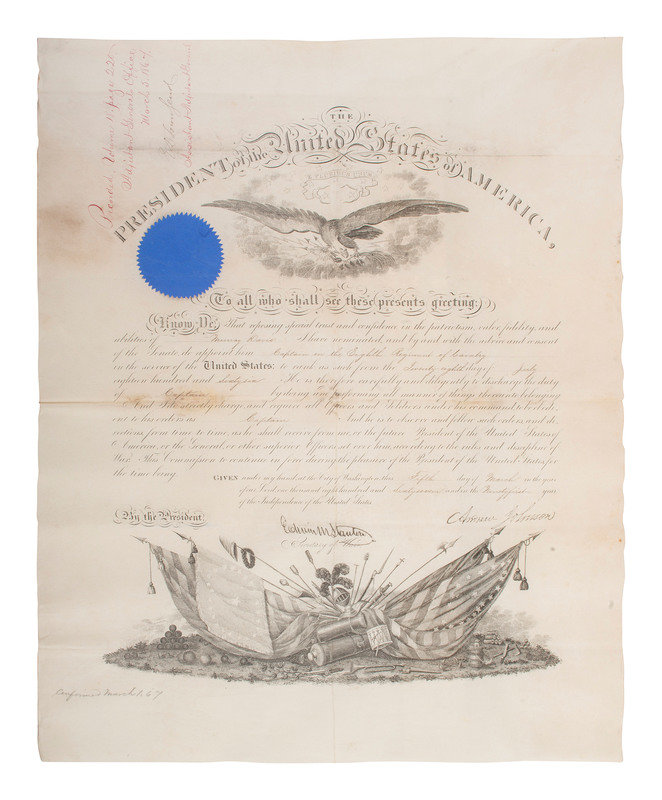 Recorded, Volume 11, page 22
Adjutant General's Office
March 5, 1867
Assistant Adjutant General
THE
PRESIDENT of the United States of AMERICA,
E PLURIBUS UNUM
To all who shall see these presents greeting:
Know Ye, That reposing special trust and confidence in the patriotism, valor, fidelity, and
abilities of Murray Davis I have nominated, and by and with the advice and consent
of the Senate do appoint him Captain in the Eighth Regiment of Cavalry
in the service of the United States: to rank as such from the Twenty eighth day of July
eighteen hundred and sixty six He is therefore carefully and diligently to discharge the duty
of Captain by doing and performing all manner of things thereunto belonging.
And I do strictly charge, and require all Officers and Soldiers under his command to be obedi-
ent to his orders as Captain And he is to observe and follow such orders and di-
rections from time to time, as he shall receive from me, or the future President of the United States of
America, or the General, or other superior Officers set over him, according to the rules and discipline of
War. This Commission to continue in force during the pleasure of the President of the United States for
the time being.
GIVEN under my hand, at the City of Washington this Fifth day of March in the year
of our Lord, one thousand eight hundred and sixty seven and in the Ninety first year
of the Independence of the United States.
By the President:
Andrew Johnson
Edwin M Stanton
Secretary of War
Confirmed March 1, 67